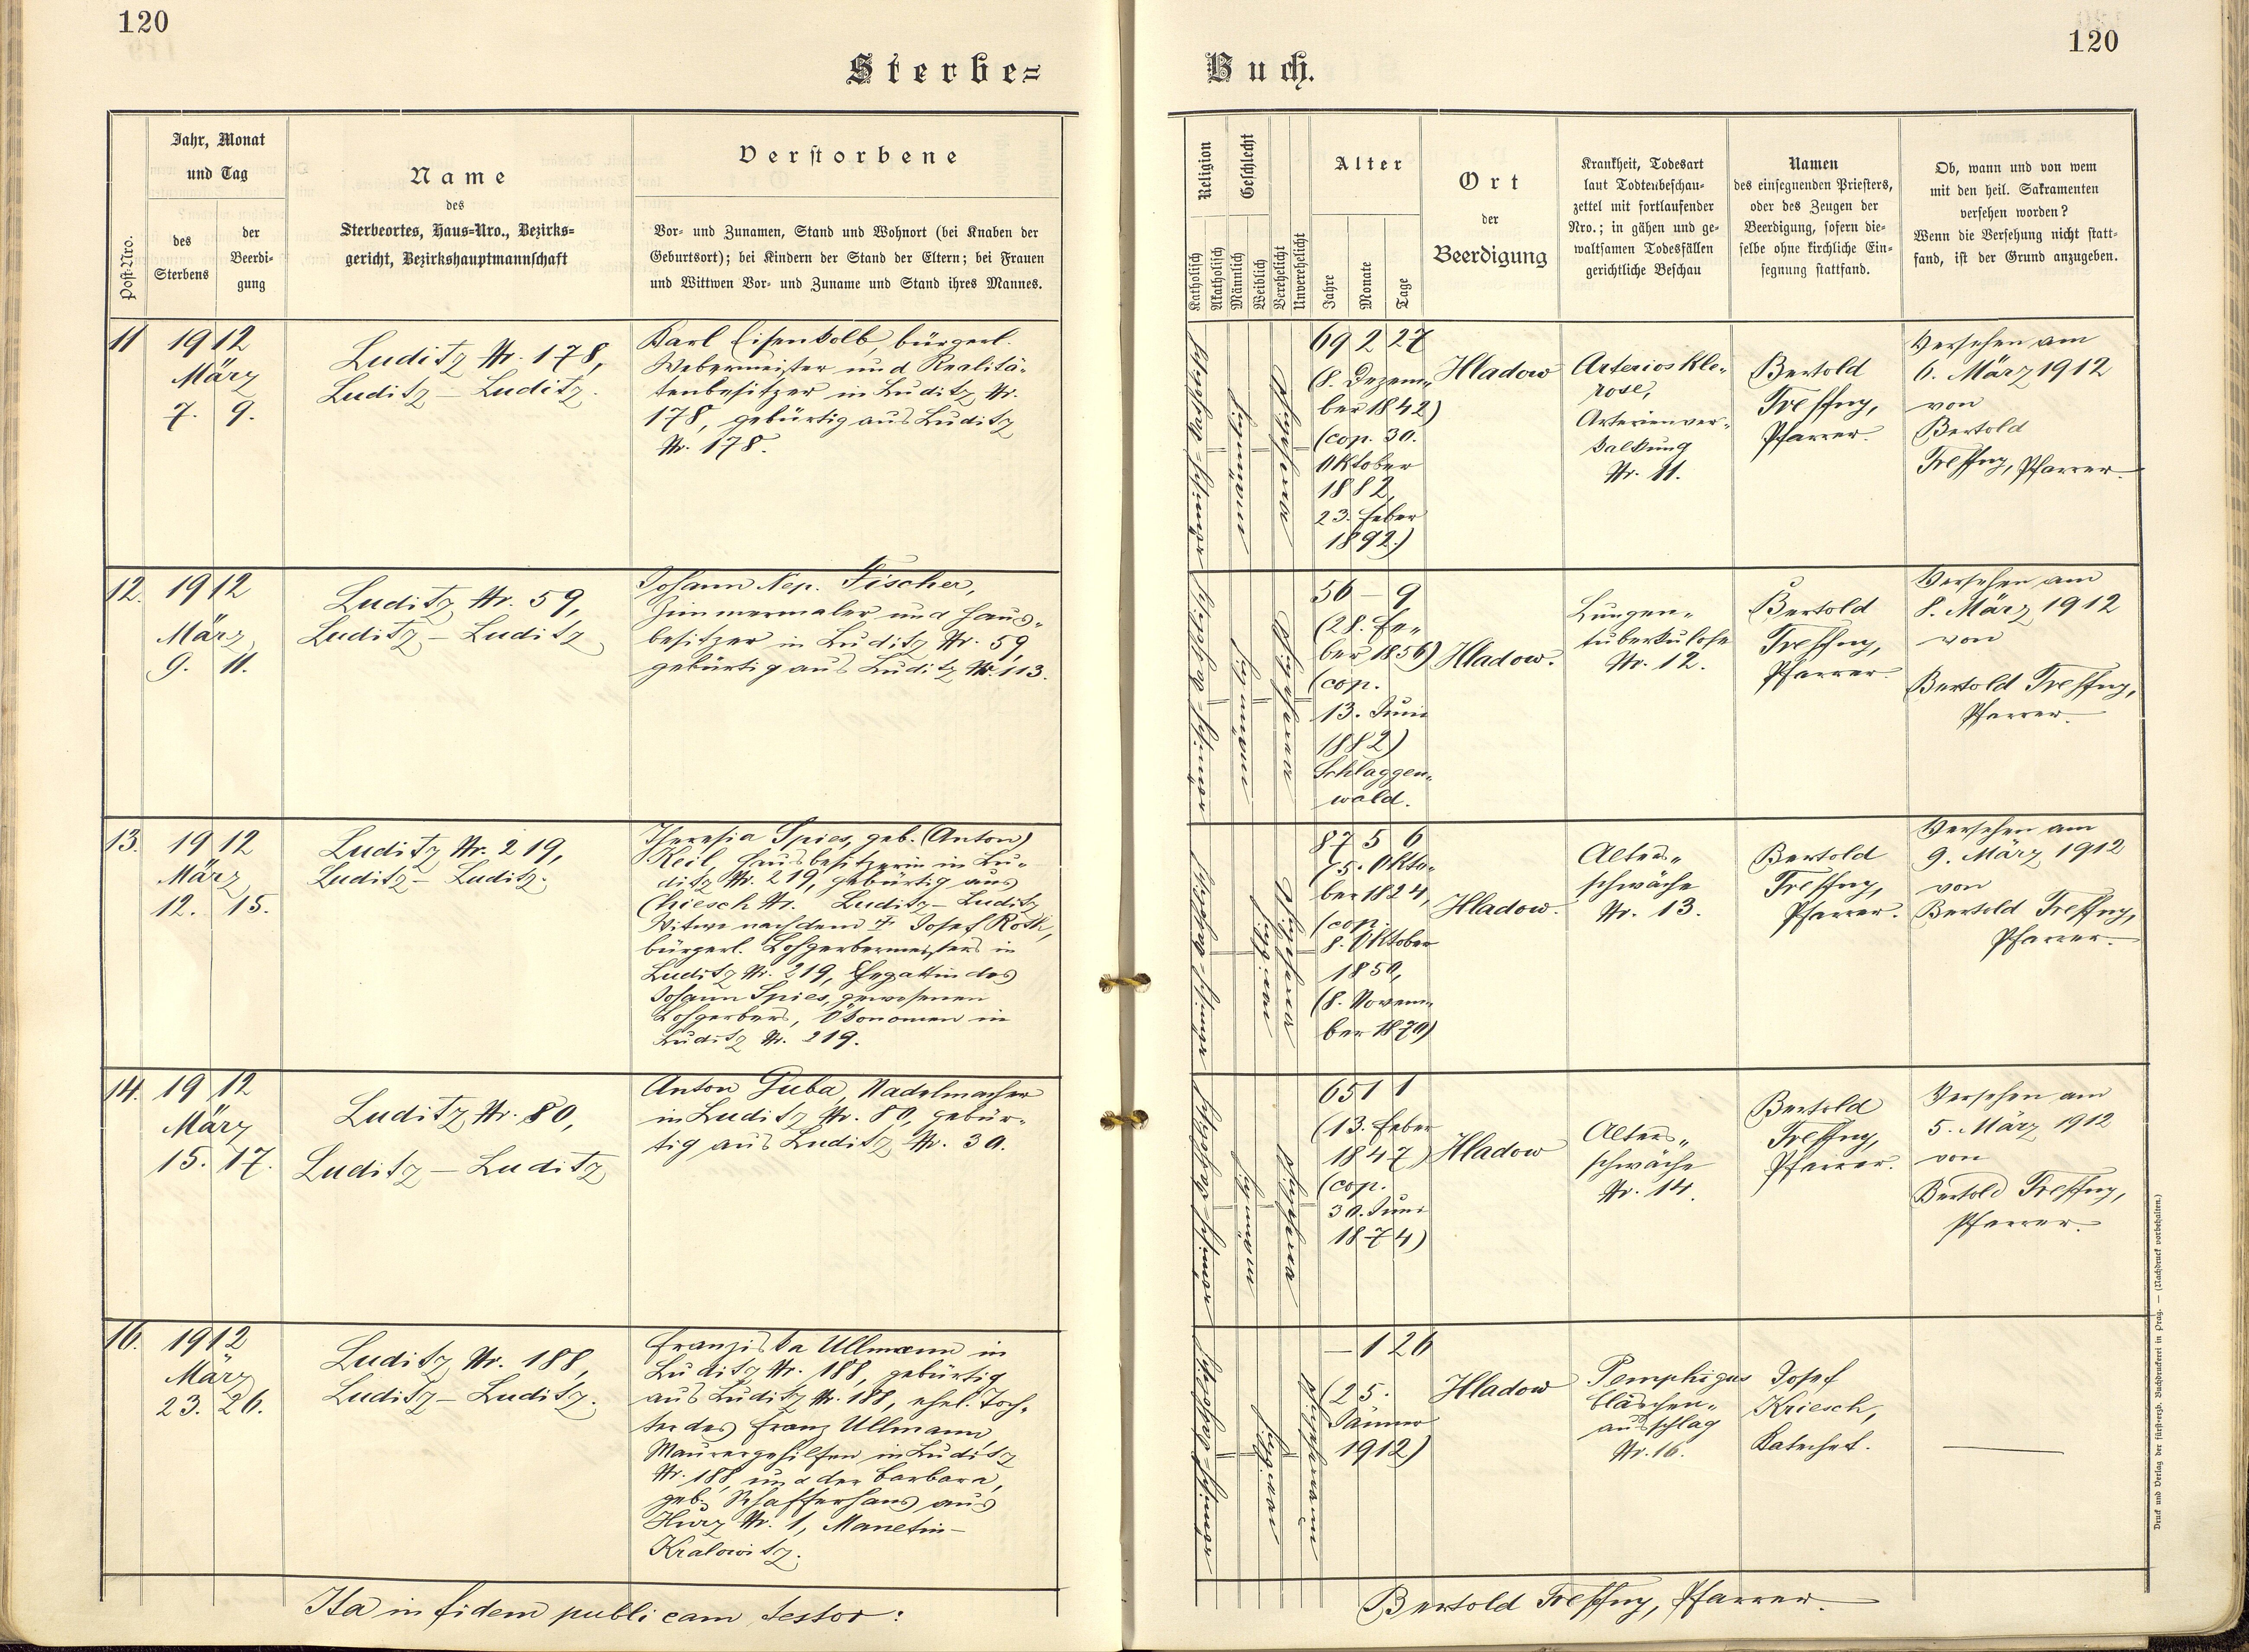 120
120
Sterbe=
Buch.
Post-Nro.
Jahr, Monat
und Tag
des
Sterbens
der
Beerdi-
gung
Name
des
Sterbeortes, Haus-Nro., Bezirks-
gericht, Bezirkshauptmannschaft
Verstorbene
Vor- und Zunamen, Stand und Wohnort (bei Knaben der
Geburtsort); bei Kindern der Stand der Eltern; bei Frauen
und Wittwen Vor- und Zuname und Stand ihres Mannes.
Religion
Katholisch
Akatholisch
Geschlecht
Männlich
Weiblich
Verehelicht
Unverehelicht
Alter
Jahre
Monate
Tage
Ort
der
Beerdigung
Krankheit, Todesart
laut Todtenbeschau-
zettel mit fortlaufender
Nro.; in gähen und ge-
waltsamen Todesfällen
gerichtliche Beschau
Namen
des einsegnenden Priesters,
oder des Zeugen der
Beerdigung, sofern die-
selbe ohne kirchliche Ein-
segnung stattfand.
Ob, wann und von wem
mit den heil. Sakramenten
versehen worden?
Wenn die Versehung nicht statt-
fand, ist der Grund anzugeben.
11
1912
März
7. 9.
Luditz Nr. 178,
Luditz – Luditz.
Karl Eisenkolb, bürgerl.
Webermeister und Realitä-
tenbesitzer in Luditz Nr.
178, gebürtig aus Luditz
Nr. 178.
69 2 27
(8. Dezem-
ber 1842)
(cop. 30.
Oktober
1882,
23. Feber
1892.)
Hladow
Arterioskle-
rose,
Arterienver-
kalkung
Nr. 11.
Bertold
Treffny,
Pfarrer.
Versehen am
6. März 1912
von
Bertold
Treffny, Pfarrer.
12.
1912
März
9. 11.
Luditz Nr. 59,
Luditz – Luditz
Johann Nep. Fischer,
Zimmermaler und Haus-
besitzer in Luditz Nr. 59,
gebürtig aus Luditz Nr. 113.
56 – 9
(28. Fe-
ber 1856)
(cop.
13. Juni
1882)
Schlaggen-
wald.
Hladow.
Lungen-
tuberkulose
Nr. 12.
Bertold
Treffny,
Pfarrer.
Versehen am
8. März 1912
von
Bertold Treffny,
Pfarrer.
13.
1912
März
12. 15.
Luditz Nr. 219,
Luditz – Luditz.
Theresia Spies, geb. (Anton)
Keil, Hausbesitzerin in Lu-
ditz Nr. 219, gebürtig aus
Chiesch Nr. Luditz – Luditz
Witwe nach dem † Josef Roth,
bürgerl. Lohgerbermeisters in
Luditz Nr. 219, Ehegattin des
Johann Spies, gewesenen
Lohgerbers, Ökonomen in
Luditz Nr. 219.
87 5 6
(5. Okto-
ber 1824,
(cop.
8. Oktober
1850,
(8. Novem-
ber 1870)
Hladow.
Alters-
schwäche
Nr. 13.
Bertold
Treffny,
Pfarrer.
Versehen am
9. März 1912
von
Bertold Treffny,
Pfarrer.
14.
1912
März
15. 17.
Luditz Nr. 80,
Luditz – Luditz
Anton Guba, Nadelmacher
in Luditz Nr. 80, gebür-
tig aus Luditz Nr. 30.
65 1 1
(13. Feber
1847)
(cop.
30. Juni
1874)
Hladow
Alters-
schwäche
Nr. 14.
Bertold
Treffny,
Pfarrer.
Versehen am
5. März 1912
von
Bertold Treffny,
Pfarrer.
16.
1912
März
23. 26.
Luditz Nr. 188,
Luditz – Luditz.
Franziska Ullmann in
Luditz Nr. 188, gebürtig
aus Luditz Nr. 188, ehel. Toch-
ter des Franz Ullmann,
Maurergehilfen in Luditz
Nr. 188 und der Barbara,
geb. Schafferhans aus
Hurz Nr. 1, Manetin –
Kralowitz.
– 1 26
(25.
Jänner
1912)
Hladow
Pemphigus
bläschen-
ausschlag
Nr. 16.
Josef
Kriesch,
Katechet.
Ita in fidem publicam testor:
Bertold Treffny, Pfarrer.
Druck und Verlag der fürst-erzb. Buchdruckerei in Prag. — (Nachdruck vorbehalten.)